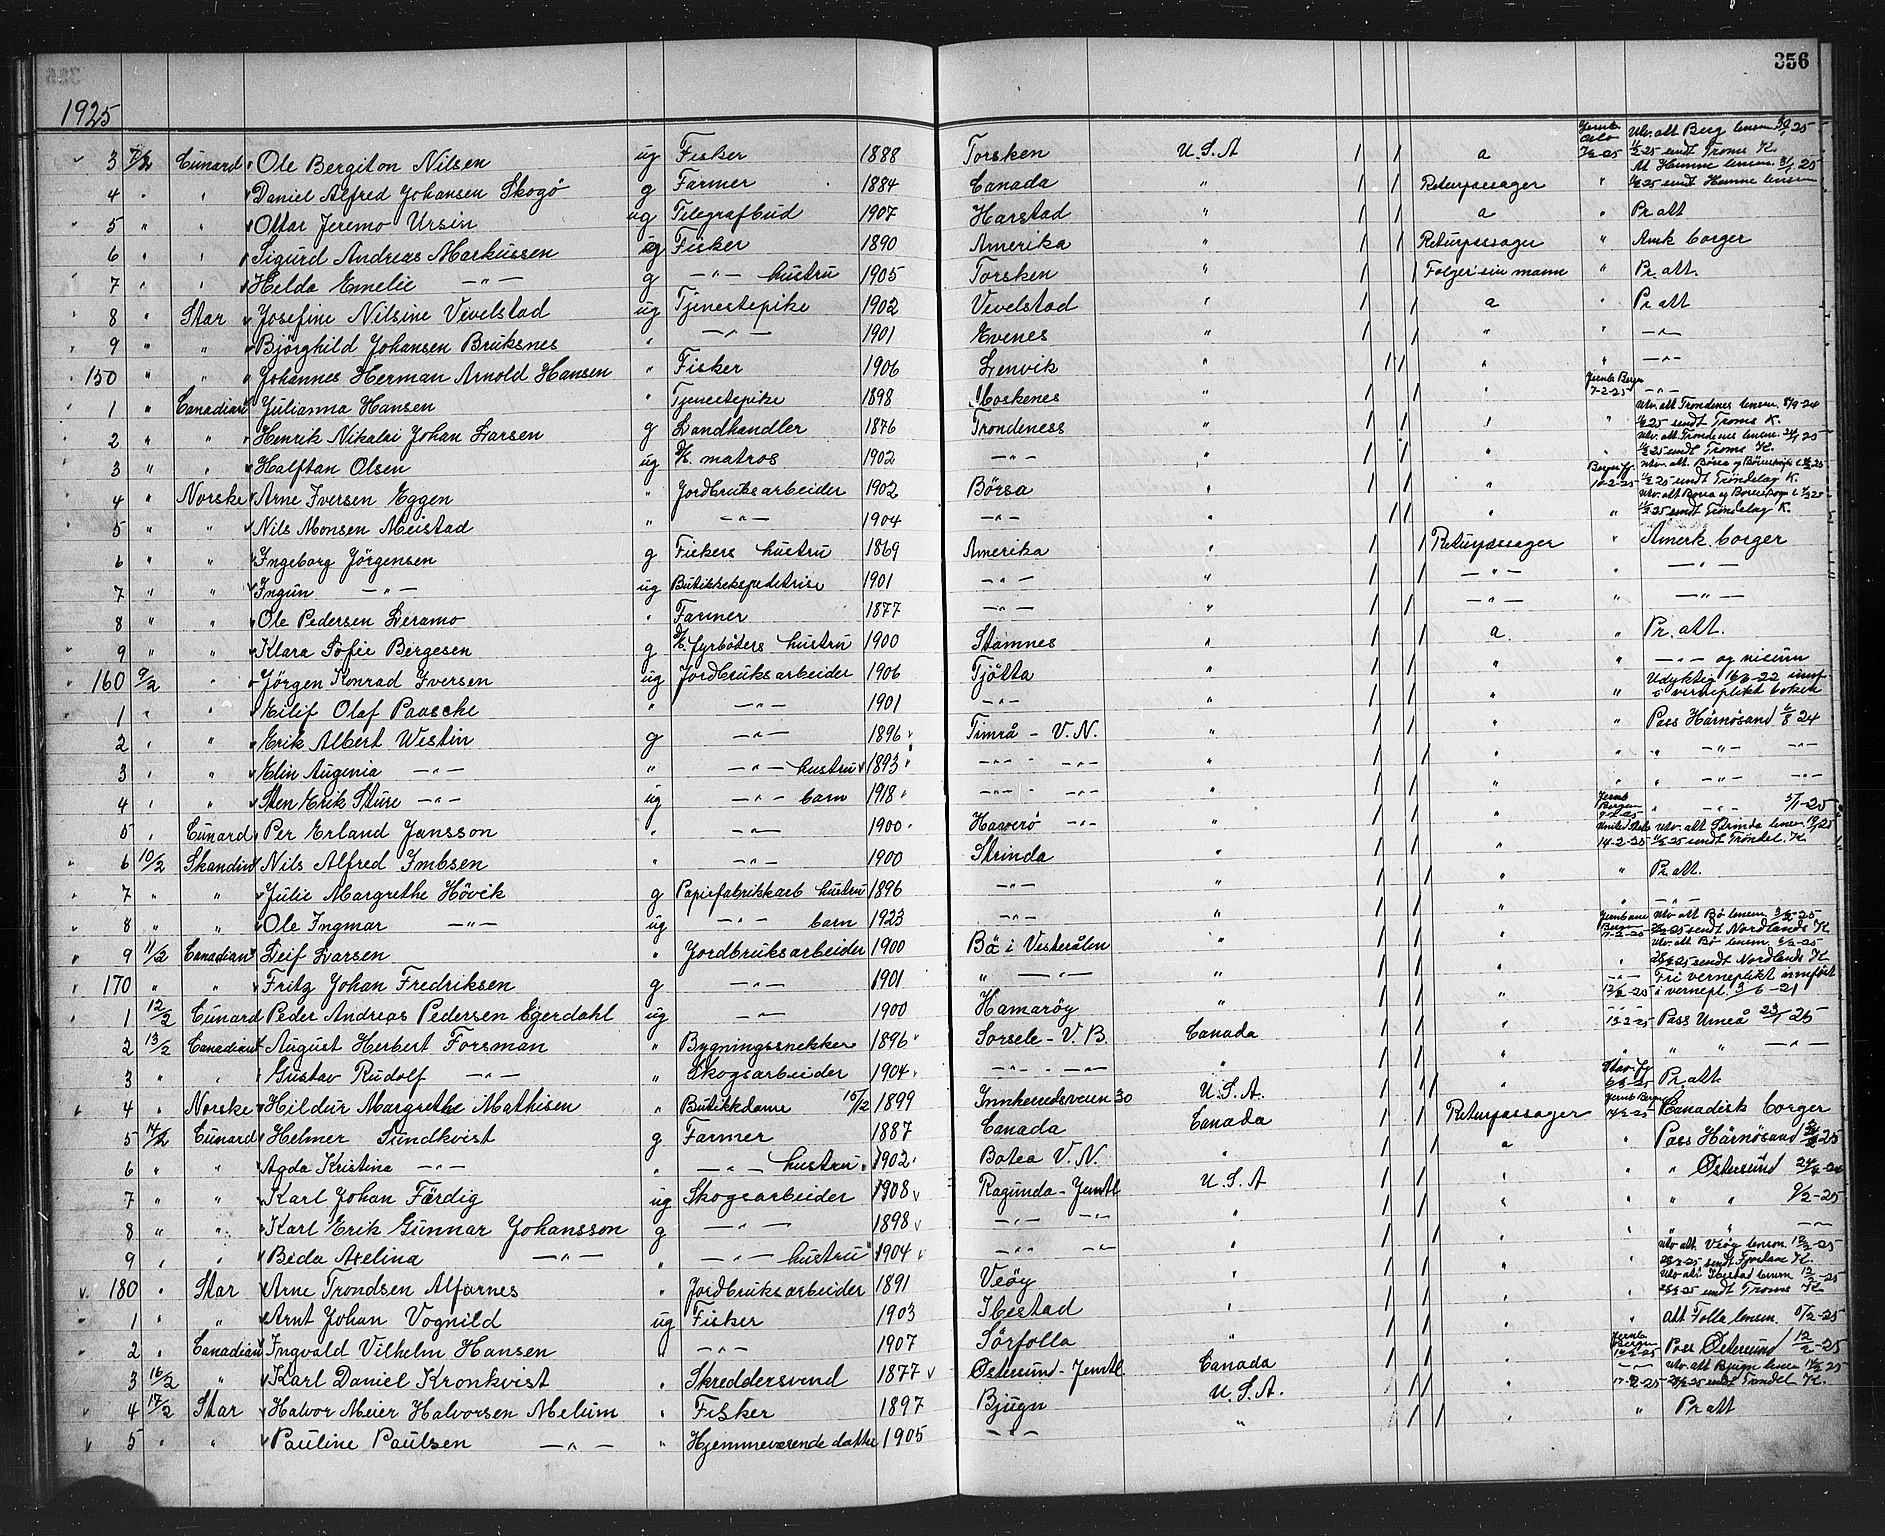 356
1925
3 7/2 Cunard Ole Bergiton Nilsen ug Fisker 1888 Torsken U.S.A 1 1 a 7/2-25 Utv. att Berg lensm. 30/1 25 sendt Troms K.
4 " " Daniel Alfred Johansen Skogö g Farmer 1884 Canada " 1 1 Returpassager " At Hemne lensm. 31/1 25 sendt Hemne lensm
5 " " Ottar Jeremo Ursin ug Telegrafbud 1907 Harstad " 1 1 a " Pr att
6 " " Sigurd Andreas Markussen ug Fisker 1890 Amerika " 1 1 Returpassager " Amk borger
7 " " Helda Emelie —"— g —"— hustru 1905 Torsken " 1 1 Følger sin mann " Pr. att.
8 " Star Josefine Nilsine Vevelstad ug Tjenestepike 1902 Vevelstad " 1 1 a " Pr att
9 " " Bjørghild Johansen Bruksnes " —"— 1901 Evenes " 1 1 " " —"—
150 " " Johannes Herman Arnold Hansen " Fisker 1906 Lenvik " 1 1 " " —"—
1 " Canadian Julianna Hansen " Tjenestepike 1898 Moskenes " 1 1 " Jernb Bergn 7-2-25 —"—
2 " " Henrik Nikolai Johan Larsen g Landhandler 1876 Trondeness " 1 1 " " Utv. att Trondenes lensm. 8/9-24 sendt Troms K.
3 " " Halftan Olsen ug D/k. matros 1902 —"— " 1 1 " " Utv. att. Trondenes lensm. 24/1 25 sendt Troms K.
4 " Norske Arne Iversen Eggen " Jordbruksarbeider 1902 Börsa " 1 1 " 10-2-25 sendt Tröndelag K.
5 " " Nils Monsen Meistad " —"— 1904 —"— " 1 1 " " sendt Tröndelag K.
6 " " Ingeborg Jörgensen g Fiskers hustru 1869 Amerika " 1 1 Returpassager " Amerk. borger
7 " " Ingun —"— ug Butikkekspeditrise 1901 —"— " 1 1 —"— " —"—
8 " " Ole Pedersen Leramo " Farmer 1877 —"— " 1 1 —"— " —"—
9 " " Klara Sofie Bergesen g D/k. fyrböters hustru 1900 Stamnes " 1 1 a " Pr. att.
160 9/2 " Jörgen Konrad Iversen ug Jordbruksarbeider 1906 Tjötta " 1 1 " " —"— og visum
1 " " Eilif Olaf Paasche " —"— 1901 —"— " 1 1 " " Udyktig 16/3-22 innf i verneplikt boken
2 " " Erik Albert Westin g —"— 1896 Timrå - V.N. " 1 1 " " Pass Härnösand 6/8 24
3 " " Elin Augenia —"— " —"— hustru 1893 —"— —"— " 1 1 " " " —"— —"—
4 " " Sten Erik Sture —"— ug —"— barn 1918 —"— —"— " 1 1 " " " —"— —"—
5 " Cunard Per Erland Jansson " —"— 1900 Haverö —"— " 1 1 " Jernb Bergen " —"— 5/1-25
6 10/2 Skandin Nils Alfred Imbsen " —"— 1900 Strinda 1 1 " 14-2-25 Utv. att Strinda lensm 19/1 25 sendt Tröndel. K
7 " " Julie Margrethe Hövik g Papirfabrikkarb hustru 1896 —"— " 1 1 " " Pr att.
8 " " Ole Ingmar —"— ug —"— barn 1923 —"— " 1 1 " " —"—
9 11/2 Canadian Leif Larsen " Jordbruksarbeider 1900 Bö i Vesterålen " 1 1 " Jernbane Bergen Utv att Bö lensm. sendt Nordlands K
170 " " Fritz Johan Fredriksen g —"— 1901 " —"— " 1 1 " " Utv. att Bö lensm. sendt Nordlands K
1 12/2 Cunard Peder Andreas Pedersen Egerdahl ug —"— 1900 Hamaröy " 1 1 " —"— 13/2-25 Fri verneplikt innfört i vernepl. 3/6-21
2 13/2 Canadian August Herbert Forsman " Bygningssnekker 1896 Sorsele - V.B. Canada 1 1 " 13-2-25 Pass Umeå 23/1 25
3 " " Gustav Rudolf —"— " Skogsarbeider 1904 —"— —"— " 1 1 " " " " —"—
4 " Norske Hildur Margrethe Mathisen " Butikkdame 15/2 1899 Innherredsveien 30 U.S.A. 1 1 " Pr att.
5 14/2 Cunard Helmer Sundkvist g Farmer 1887 Canada Canada 1 1 Returpassager Jernb Bergn 14/2-25 Canadisk borger
6 " " Agda Kristina —"— " —"— hustru 1902 Botea V.N. " 1 1 a " Pass Härnösand 25
7 " " Karl Johan Färdig ug Skogsarbeider 1908 Ragunda - Jemtl U.S.A 1 1 " " " Östersund
8 " " Karl Erik Gunnar Johansson g —"— 1898 —"— —"— " 1 1 " " " " 9/2-25
9 " " Beda Axelina —"— " —"— hustru 1904 —"— —"— " 1 1 " " —"—
180 " Star Arne Trondsen Alfarnes " Jordbruksarbeider 1891 Veöy " 1 1 " " Utv att. Veöy lensm.
1 " " Arnt Johan Vognild ug Fisker 1903 Ibestad " 1 1 " " Utv att Ibestad lensm sendt Troms K
2 " Canadian Ingvald Vilhelm Hansen " —"— 1907 Sörfolla " 1 1 " " att Folla lensm. 5/2-25
3 16/2 " Karl Daniel Kronkvist " Skreddersvend 1877 Östersund - Jemtl. Canada 1 1 " Jernb Bergen Pass Östersund 12/2-25
4 17/2 Star Halvor Meier Halvorsen Melum " Fisker 1897 Bjugn U.S.A. 1 1 " 17-2-25 Utv. att Bjugn lensm sendt Tröndel K.
5 " " Pauline Paulsen —"— " Hjemmeværende datter 1905 —"— " 1 1 " " Pr att